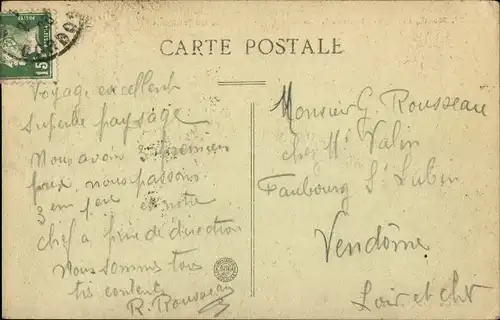 15
CARTE POSTALE
Voyage excellent
Superbe paysage
Nous avons 3 premiers
prix, nous passons
3em et notre
chef a prix de direction
Nous sommes tous
tis contents
R. Rousseau
Monsieur G. Rousseau
chez Mr Valin
Faubourg St Lubin
Vendôme
Loir et cher